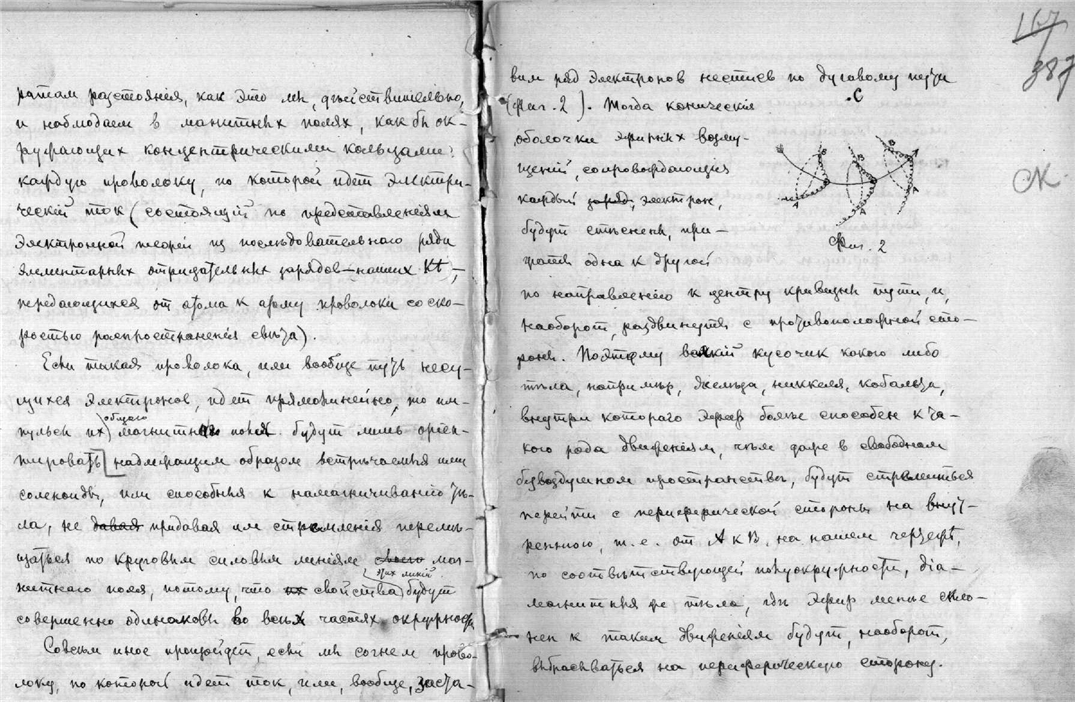 ратам разстоянiя, как это мы, дѣйствительно,
и наблюдаем в магнитных полях, как бы ок-
ружающих концентрическими кольцами
каждую проволоку, по которой идет электри-
ческiй ток (состоящiй по представленiям
электронной теорiи из последовательнаго ряда
элементарных отрицательных зарядов—наших Kt,—
передающихся от атома к атому проволоки со ско-
ростью распространенiя свѣта).
Если такая проволока, или вообще путь несу-
щихся электронов, идет прямолинейно, то им-
пульсы их общаго магнитнаго поля будут лишь орiен-
тировать надлежащим образом встрѣчаемыя ими
соленоиды, или способныя к намагничиванiю тѣ-
ла, не давая придавая им стремленiя перемѣ-
щаться по круговым силовым линiям маг-
нитнаго поля, потому, что свойства этих линiй будут
совершенно одинаковы во всѣх частях окружности.
Совсѣм иное произойдет, если мы согнем прово-
локу, по которой идет ток, или, вообще, заста-
167
387
вим ряд электронов нестись по дуговому пути
(Фиг. 2). Тогда коническiя
оболочки эфирных возму-
щенiй, сопровождающiя
каждый заряд, электрон,
будут стѣснены, при-
жаты одна к другой
C
B
B
B
A
A
A
Фиг. 2
СК.
по направленiю к центру кривизны пути, и,
наоборот, раздвинутся с противоположной сто-
роны. Поэтому всякiй кусочек какого либо
тѣла, напримѣр, желѣза, никкеля, кобальта,
внутри котораго эфир болѣе способен к та-
кого рода движенiям, чѣм даже в свободном
безвоздушном пространствѣ, будут стремиться
перейти с периферической стороны на внут-
реннюю, т.е. от A к B, на нашем чертежѣ,
по соотвѣтствующей полуокружности, дiа-
магнитныя же тѣла, гдѣ эфир менѣе скло-
нен к таким движенiям будут, наоборот,
выбрасываться на периферическую сторону.